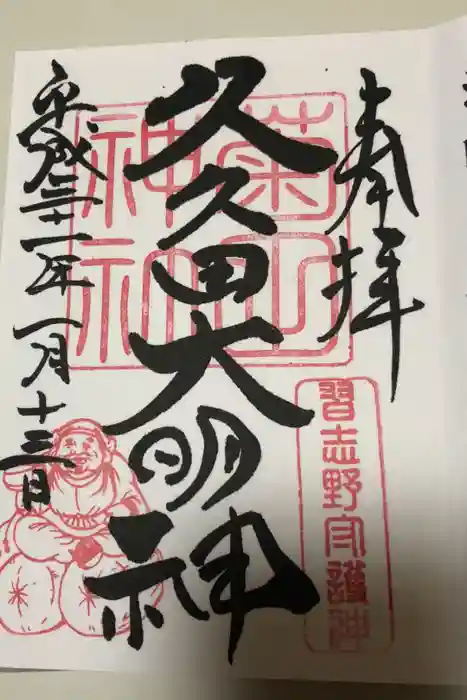 奉拝
習志野守護神
菊田神社
久久田大明神
平成三十一年一月十三日